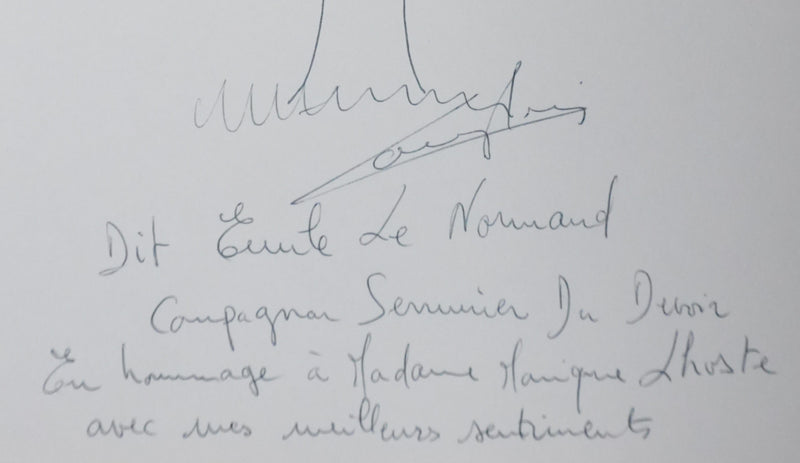 Dit Emile Le Normand
Compagnon Serrurier Du Devoir
En hommage à Madame Monique Lhoste
avec mes meilleurs sentiments